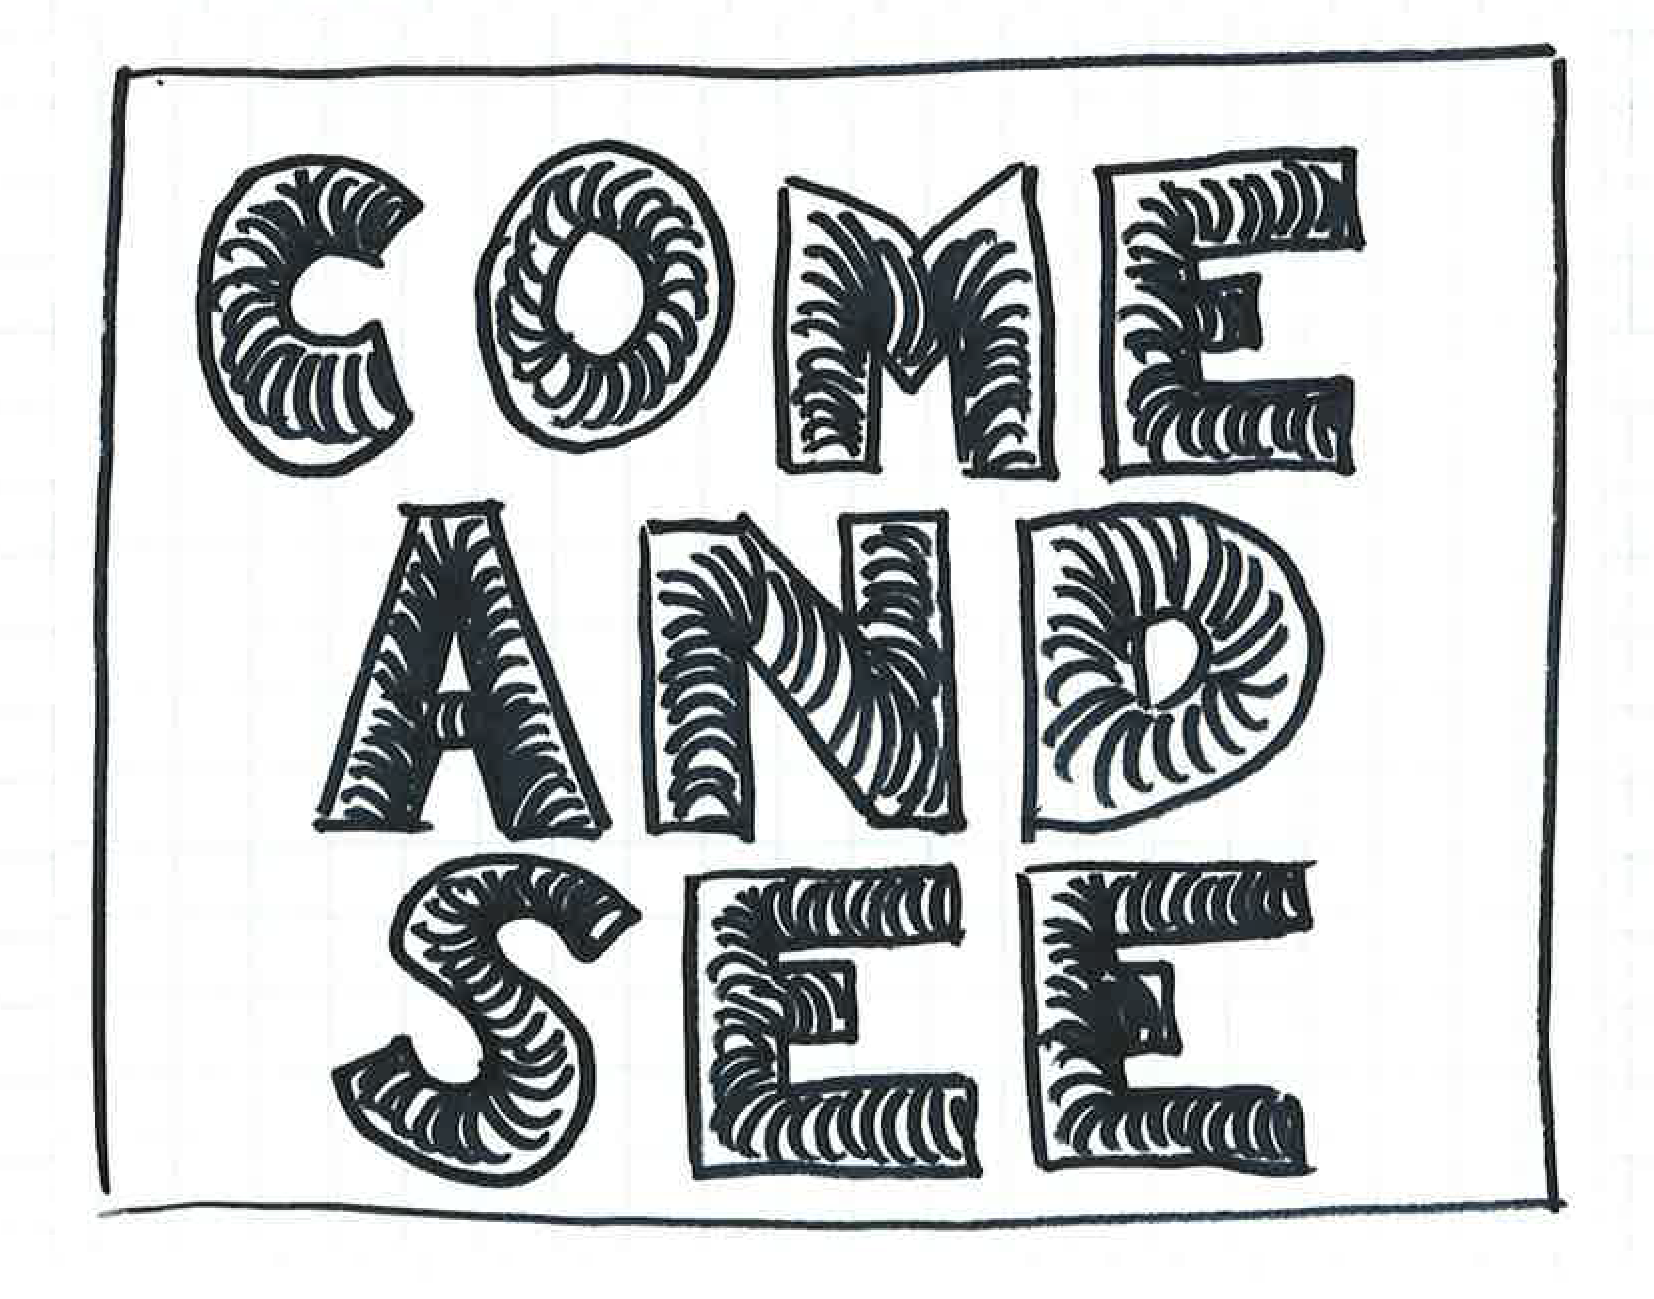 COME
AND
SEE